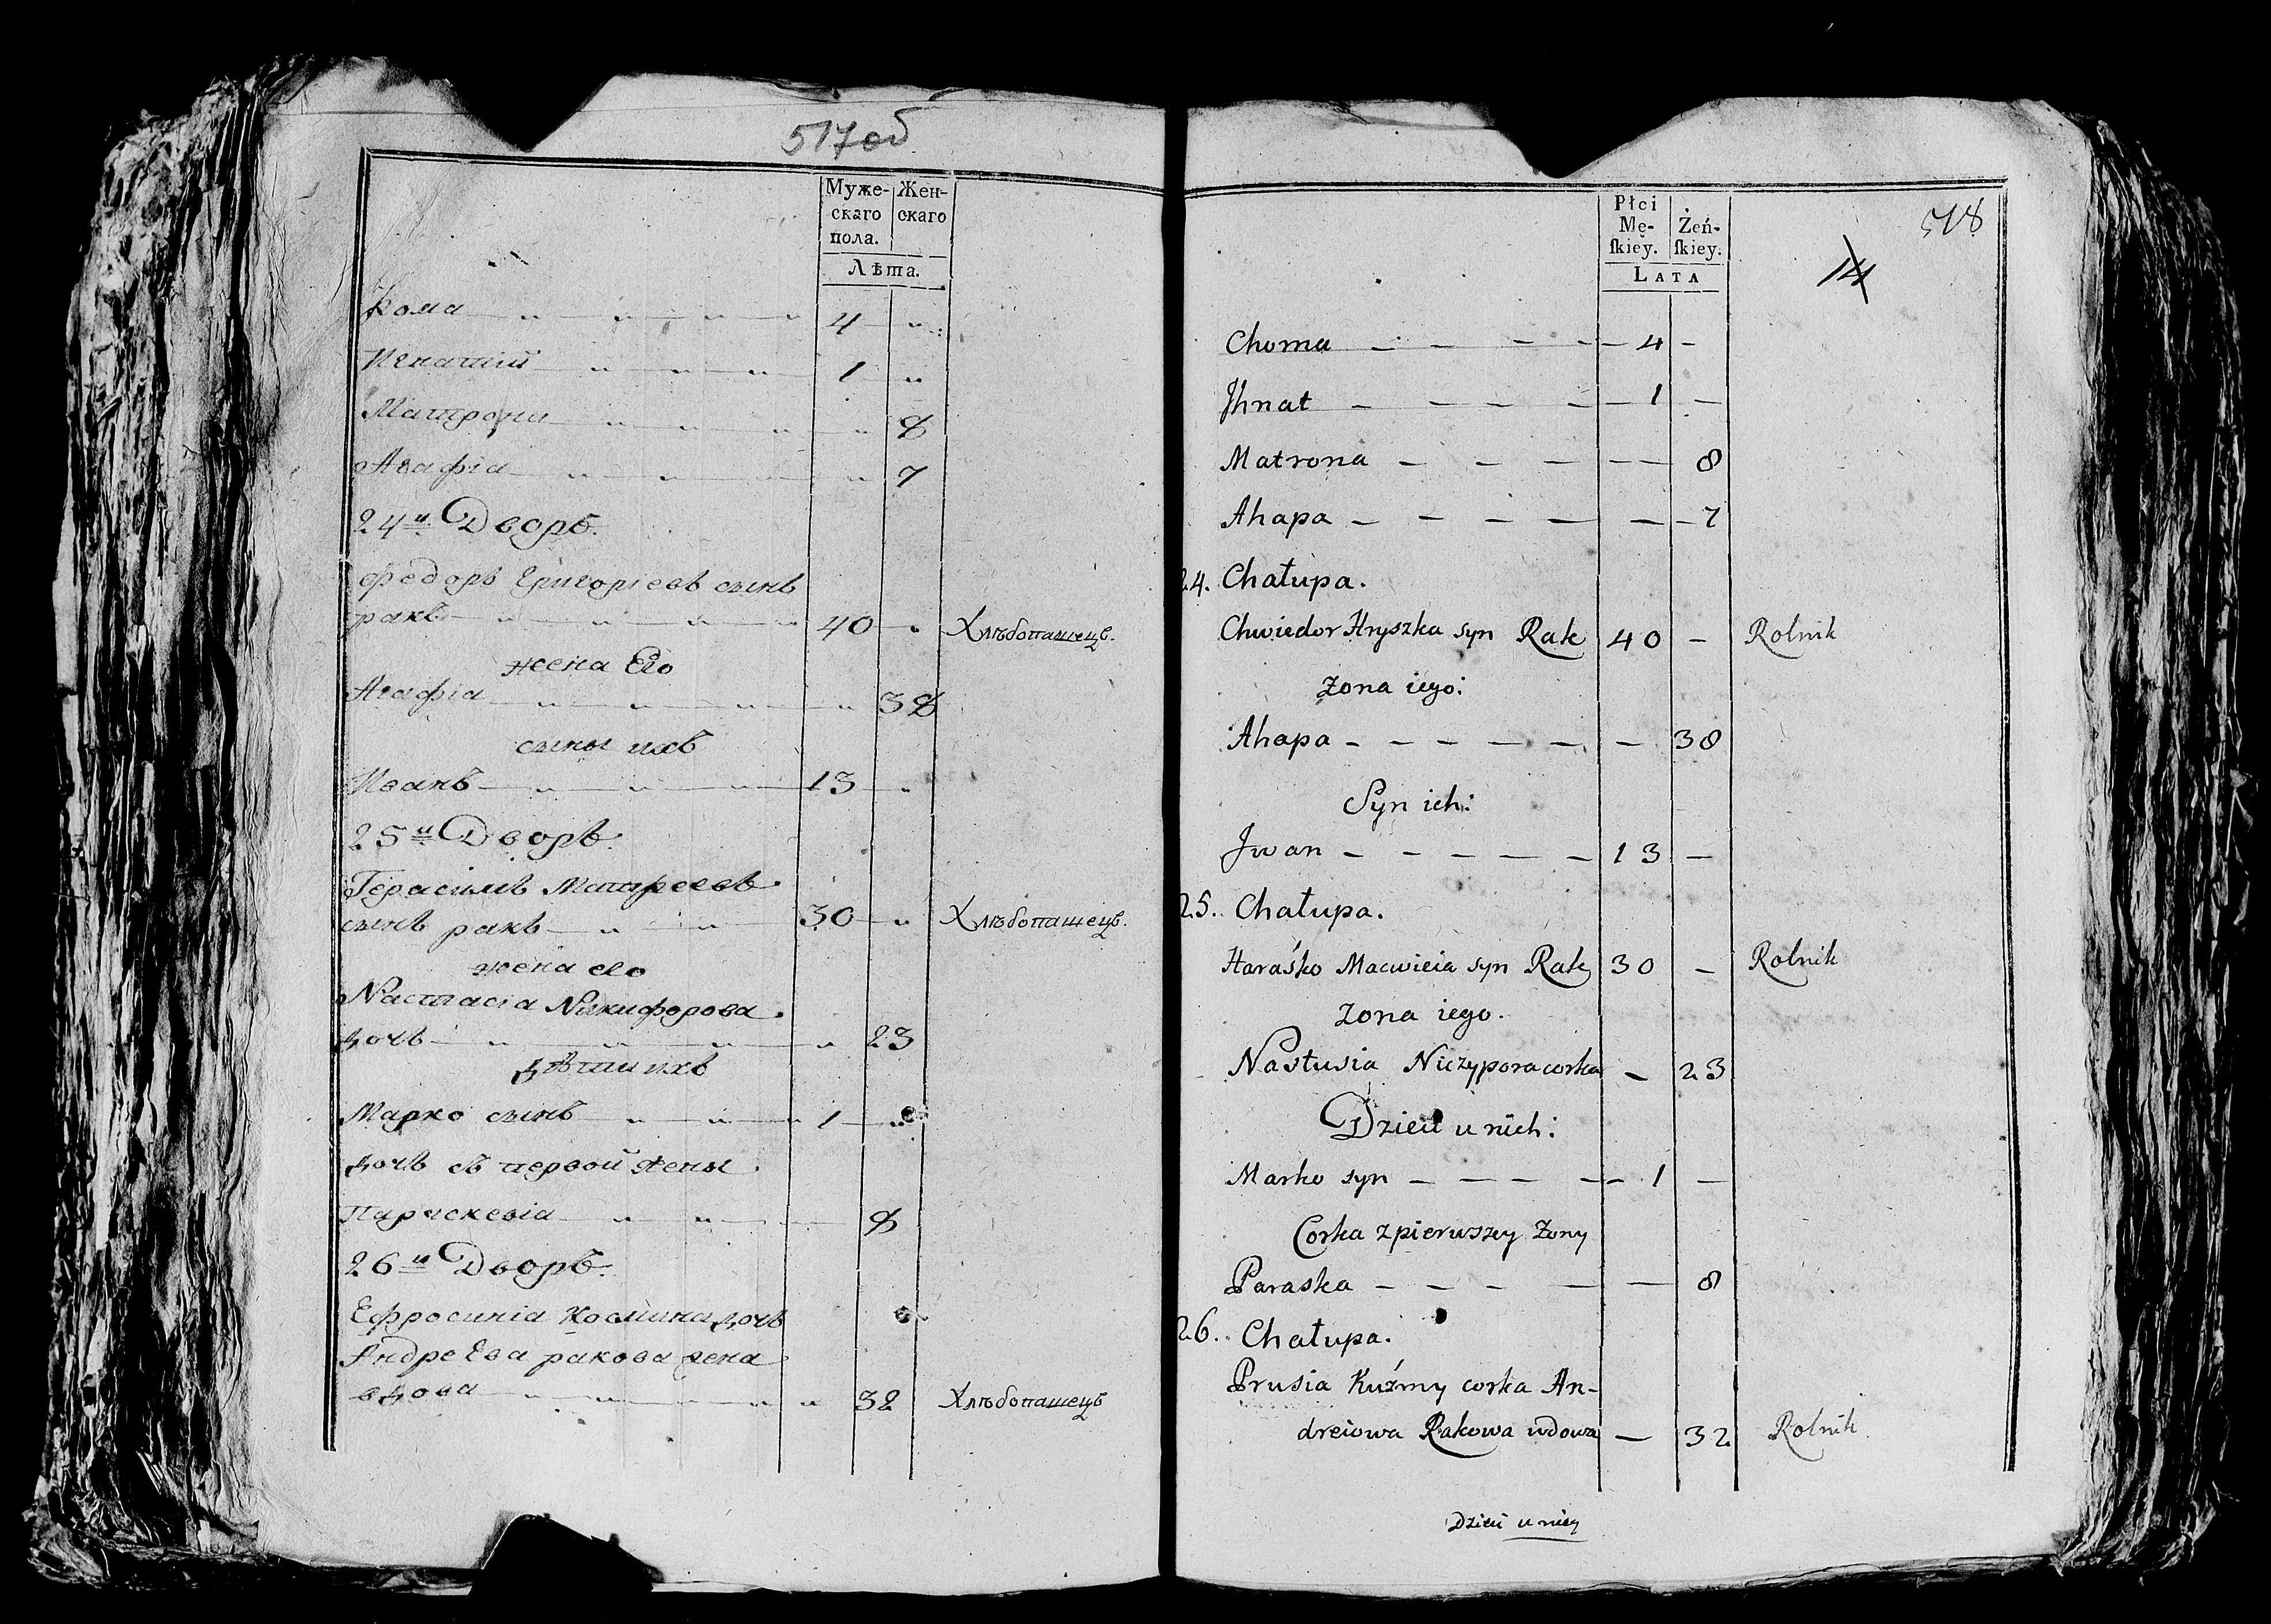 517об
Муже- Жен-
скаго скаго
пола.
Лѣта.
Хома 4
Игнатій 1
Матрона 8
Агафіа 7
24й Дворъ.
Федоръ Григорієвъ сынъ
ракъ 40 Хлѣбопашецъ.
жена Его
Агафіа 38
сыны ихъ
Иванъ 13
25й Дворъ.
Герасимъ Матфеевъ
сынъ ракъ 30 Хлѣбопашецъ.
жена его
Настасіа Никифорова
дочь 23
дѣти ихъ
Марко сынъ 1
дочь съ первой жены
Параскевіа 8
26й Дворъ.
Ефросиніа Космина дочь
Андреева ракова жена
вдова 32 Хлѣбопашецъ
518
14
Płci
Mę- Żeń-
ſkiey. ſkiey.
LATA
Choma — 4 —
Jhnat — 1 —
Matrona — 8
Ahapa — 7
24. Chałupa.
Chwiedor Hryszka syn Rak 40 — Rolnik
Zona iego:
Ahapa — 38
Syn ich:
Jwan — 13 —
25. Chałupa.
Haraśko Macwieia syn Rak 30 — Rolnik
Zona iego.
Nastusia Niczypora corka — 23
Dzieci u nich:
Marko syn — 1 —
Corka z pierwszey Zony
Paraska — 8
26. Chałupa.
Prusia Kuźmy corka An-
dreiowa Rakowa wdowa — 32 Rolnik
Dzieci u niey